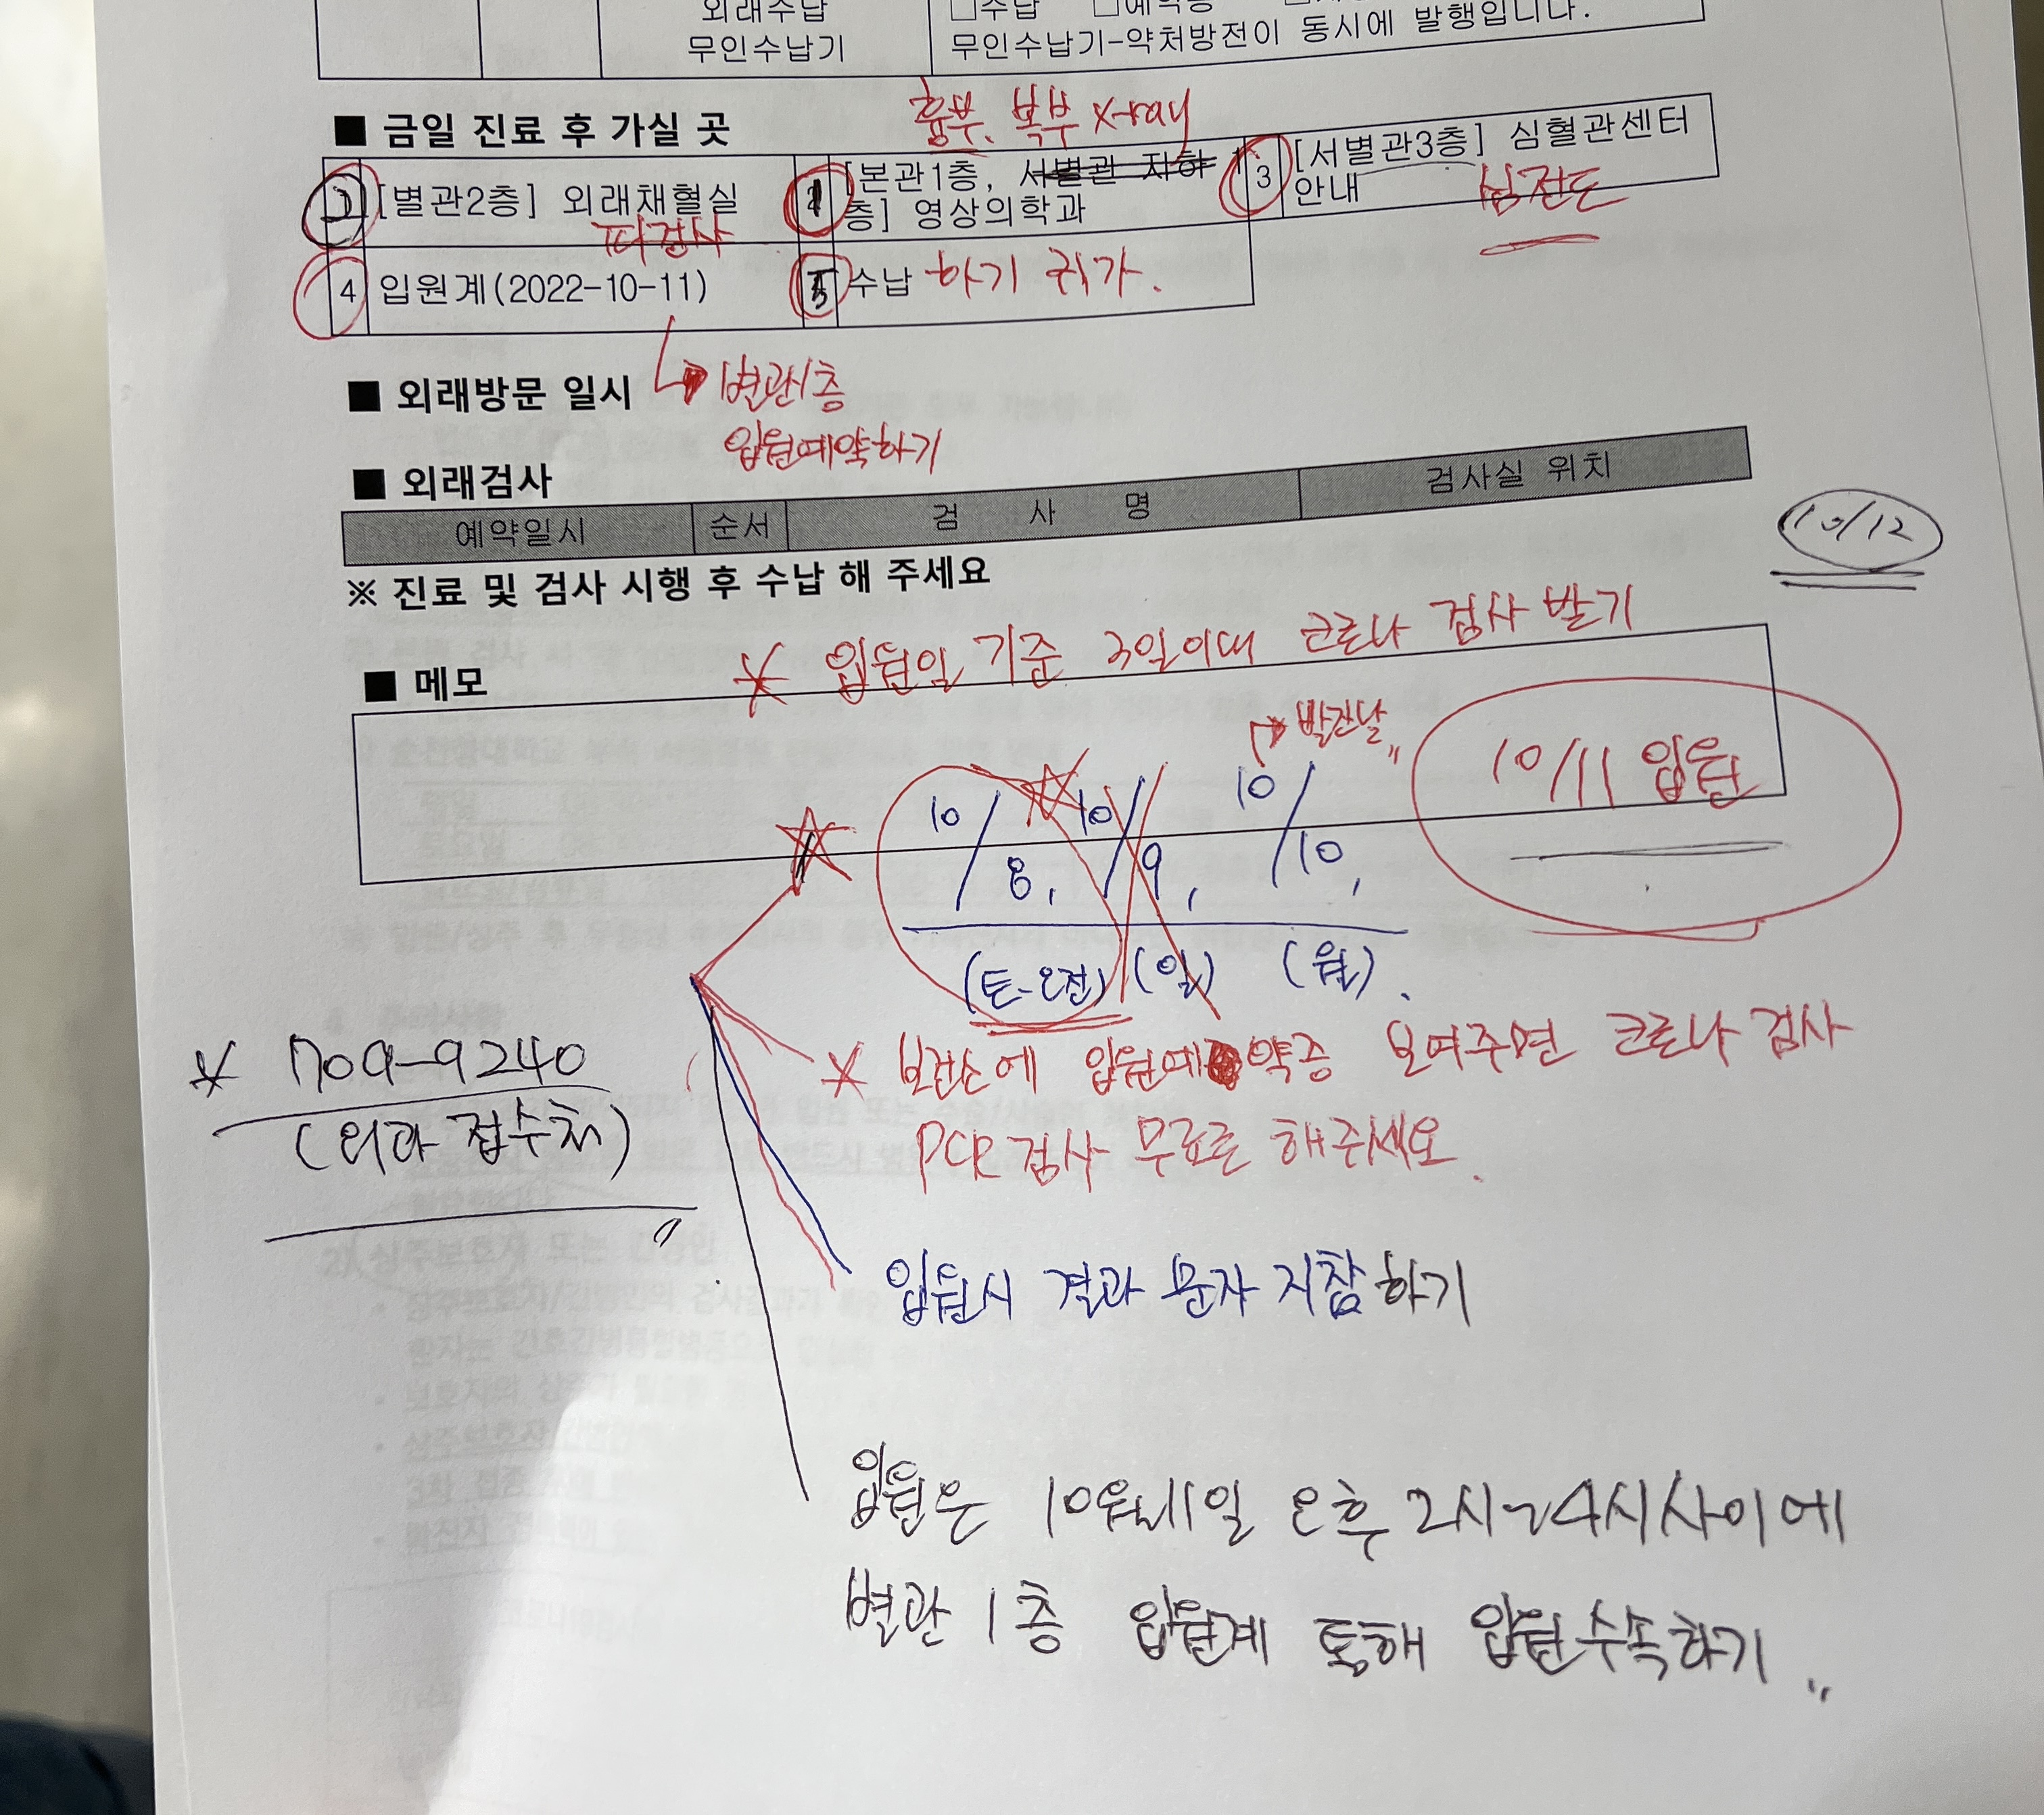 외래수납
무인수납기
□수납 □예약증
무인수납기-약처방전이 동시에 발행입니다.
■ 금일 진료 후 가실 곳
흉부. 복부 x-ray
[별관2층] 외래채혈실
피검사
1 [본관1층, 서별관 지하 1
층] 영상의학과
3 [서별관3층] 심혈관센터
안내
심전도
4 입원계(2022-10-11)
5 수납 하기 귀가.
■ 외래방문 일시
별관1층
입원예약하기
■ 외래검사
예약일시 순서 검 사 명 검사실 위치
10/12
※ 진료 및 검사 시행 후 수납 해 주세요
* 입원일 기준 3일이내 코로나 검사 받기
■ 메모
빨간날
10/8, 10/9, 10/10,
10/11 입원
(토-오전) (일) (월).
* 709-9240
(외과 접수처)
* 보건소에 입원예약증 보여주면 코로나 검사
PCR 검사 무료로 해주세요.
입원시 결과 문자 지참하기
입원은 10월11일 오후 2시~4시사이에
별관 1층 입원계 통해 입원수속하기